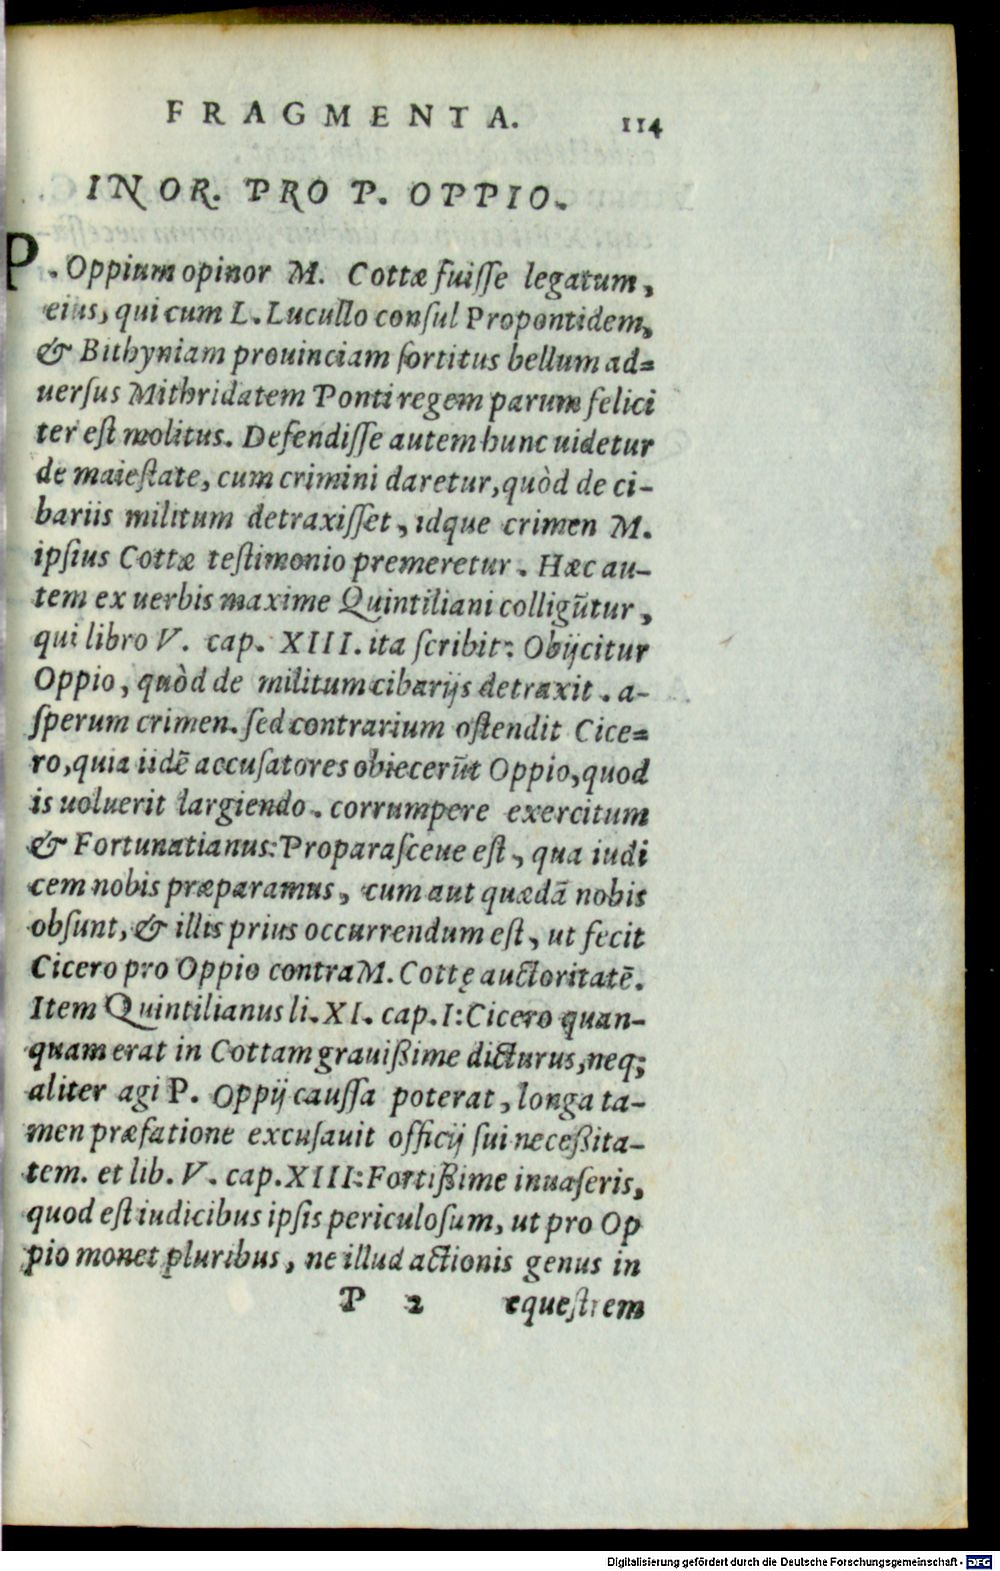 FRAGMENTA. 114
IN OR. PRO P. OPPIO.
P. Oppium opinor M. Cottæ fuiſſe legatum,
eius, qui cum L. Lucullo conſul Propontidem,
& Bithyniam prouinciam ſortitus bellum ad=
uerſus Mithridatem Ponti regem parum felici
ter eſt molitus. Defendiſſe autem hunc uidetur
de maieſtate, cum crimini daretur, quòd de ci-
bariis militum detraxiſſet, idque crimen M.
ipſius Cottæ teſtimonio premeretur. Hæc au-
tem ex uerbis maxime Quintiliani colligūtur,
qui libro V. cap. XIII. ita ſcribit: Obijcitur
Oppio, quòd de militum cibarijs detraxit. a-
ſperum crimen. ſed contrarium oſtendit Cice=
ro, quia iidē accuſatores obiecerūt Oppio, quod
is uoluerit largiendo. corrumpere exercitum
& Fortunatianus: Proparaſceue eſt, qua iudi
cem nobis præparamus, cum aut quædā nobis
obſunt, & illis prius occurrendum eſt, ut fecit
Cicero pro Oppio contra M. Cottę auctoritatē.
Item Quintilianus li. XI. cap. I: Cicero quan-
quam erat in Cottam grauißime dicturus, neq;
aliter agi P. Oppij cauſſa poterat, longa ta-
men præfatione excuſauit officij ſui neceßita-
tem. et lib. V. cap. XIII: Fortißime inuaſeris,
quod eſt iudicibus ipſis periculoſum, ut pro Op
pio monet pluribus, ne illud actionis genus in
P 2 equeſtrem
Digitalisierung gefördert durch die Deutsche Forschungsgemeinschaft - DFG